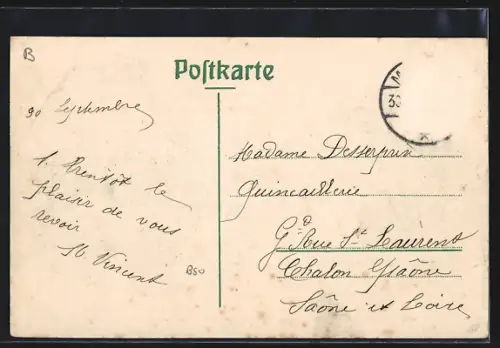 B
Postkarte
30 Septembre
A bientôt le
plaisir de vous
revoir
St Vincent
B50
Madame Desserprin
Quincaillerie
Gde Rue St Laurent
Chalon s/Saône
Saône et Loire